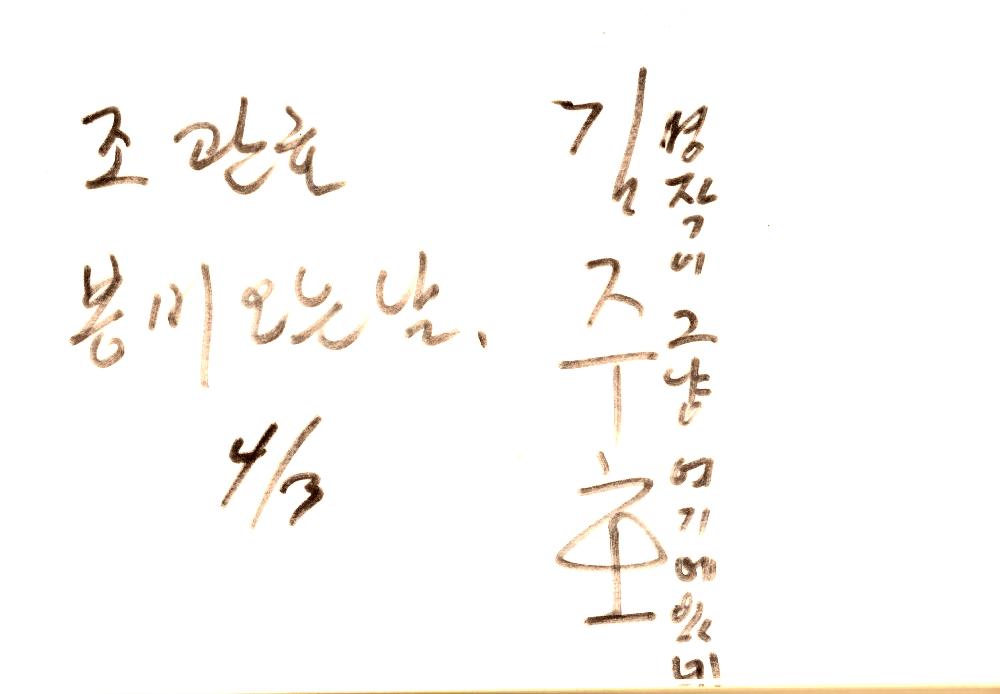 조관훈
봄비 오는 날.
4/3
김주호
명작이 그냥 여기에 있네